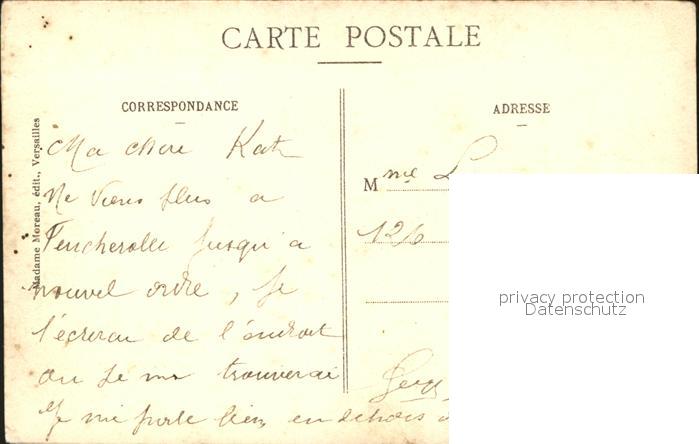 CARTE POSTALE
CORRESPONDANCE
ADRESSE
Madame Moreau, édit., Versailles
Ma chère Kat
Ne viens plus a
Feucherolle jusqu'a
nouvel ordre, je
t'écrirai de l'endroit
ou je me trouverai
Je me porte bien en dehors
Mme L
126
privacy protection
Datenschutz